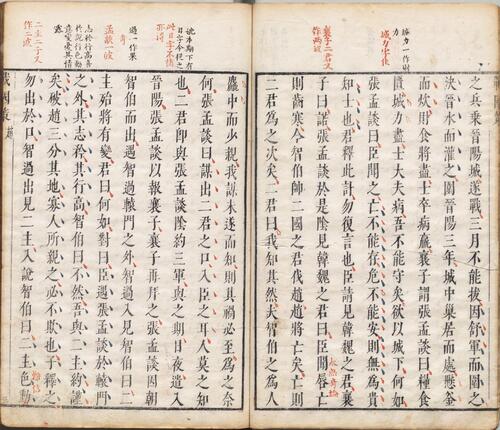 城力一作財力
城力字佳
襄子二君又
作兩波
之兵乘晉陽城遂戰三月不能拔因舒軍而圍之
決晉水而灌之圍晉陽三年城中巢居而處懸釜
而炊財食將盡士卒病羸襄子謂張孟談曰糧食
匱城力盡士大夫病吾不能守矣欲以城下何如
張孟談曰臣聞之亡不能存危不能安則無為貴
知士也君釋此計勿復言也臣請見韓魏之君襄
子曰諾張孟談於是陰見韓魏之君曰臣聞唇亡
則齒寒今智伯帥二國之君伐趙趙將亡矣亡則
二君為之次矣二君曰我知其然夫智伯之為人
本期下有
日字今從之
此日字不佳
亦得
過一作果
孟談一收
志矜行高善
二主二子又
作二波
麤中而少親我謀未遂而知則其禍必至為之奈
何張孟談曰謀出二君之口入臣之耳人莫之知
也二君即與張孟談陰約三軍與之期日夜遣入
晉陽張孟談以報襄子襄子再拜之張孟談因朝
智伯而出遇智過轅門之外智過入見智伯曰二
主殆將有變君曰何如對曰臣遇張孟談於轅門
之外其志矜其行高智伯曰不然吾與二主約謹
矣破趙三分其地寡人所親之必不欺也子釋之
勿出於口智過出見二主入說智伯曰二主色動
戰國策 趙